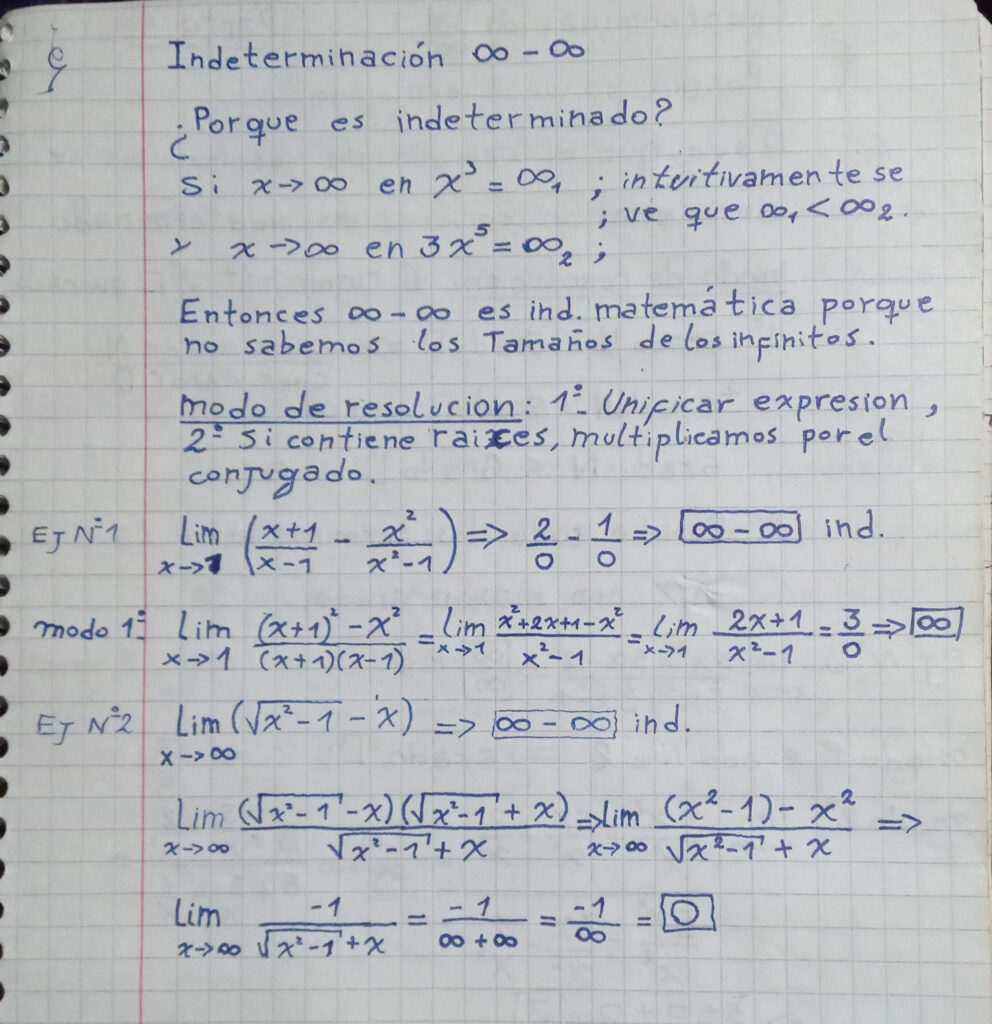 Indeterminación ∞ - ∞
¿Porque es indeterminado?
Si x→∞ en x³ = ∞₁ ; intuitivamente se
; ve que ∞₁ < ∞₂.
y x→∞ en 3x⁵ = ∞₂ ;
Entonces ∞ - ∞ es ind. matemática porque
no sabemos los Tamaños de los infinitos.
modo de resolucion: 1º- Unificar expresion,
2º- Si contiene raices, multiplicamos por el
conjugado.
EJ Nº1 Lim x→1 (x+1/x-1 - x²/x²-1) => 2/0 - 1/0 => ∞ - ∞ ind.
modo 1º- Lim x→1 (x+1)² - x²/(x+1)(x-1) = Lim x→1 x²+2x+1-x²/x²-1 = Lim x→1 2x+1/x²-1 = 3/0 => ∞
EJ Nº2 Lim x→∞ (√x²-1 - x) => ∞ - ∞ ind.
Lim x→∞ (√x²-1 - x)(√x²-1 + x)/√x²-1 + x => Lim x→∞ (x²-1) - x²/√x²-1 + x =>
Lim x→∞ -1/√x²-1 + x = -1/∞+∞ = -1/∞ = 0